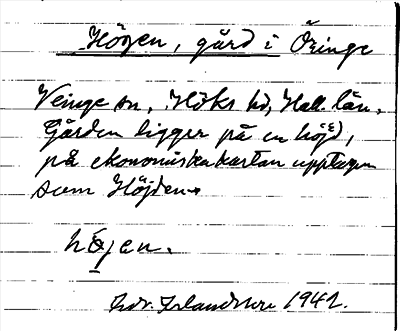 Högen, gård i Öringe
Veinge sn, Höks hd, Hall. län.
Gården ligger på en höjd,
på ekonomiska kartan upptagen
som Höjden.
högen.
1941.